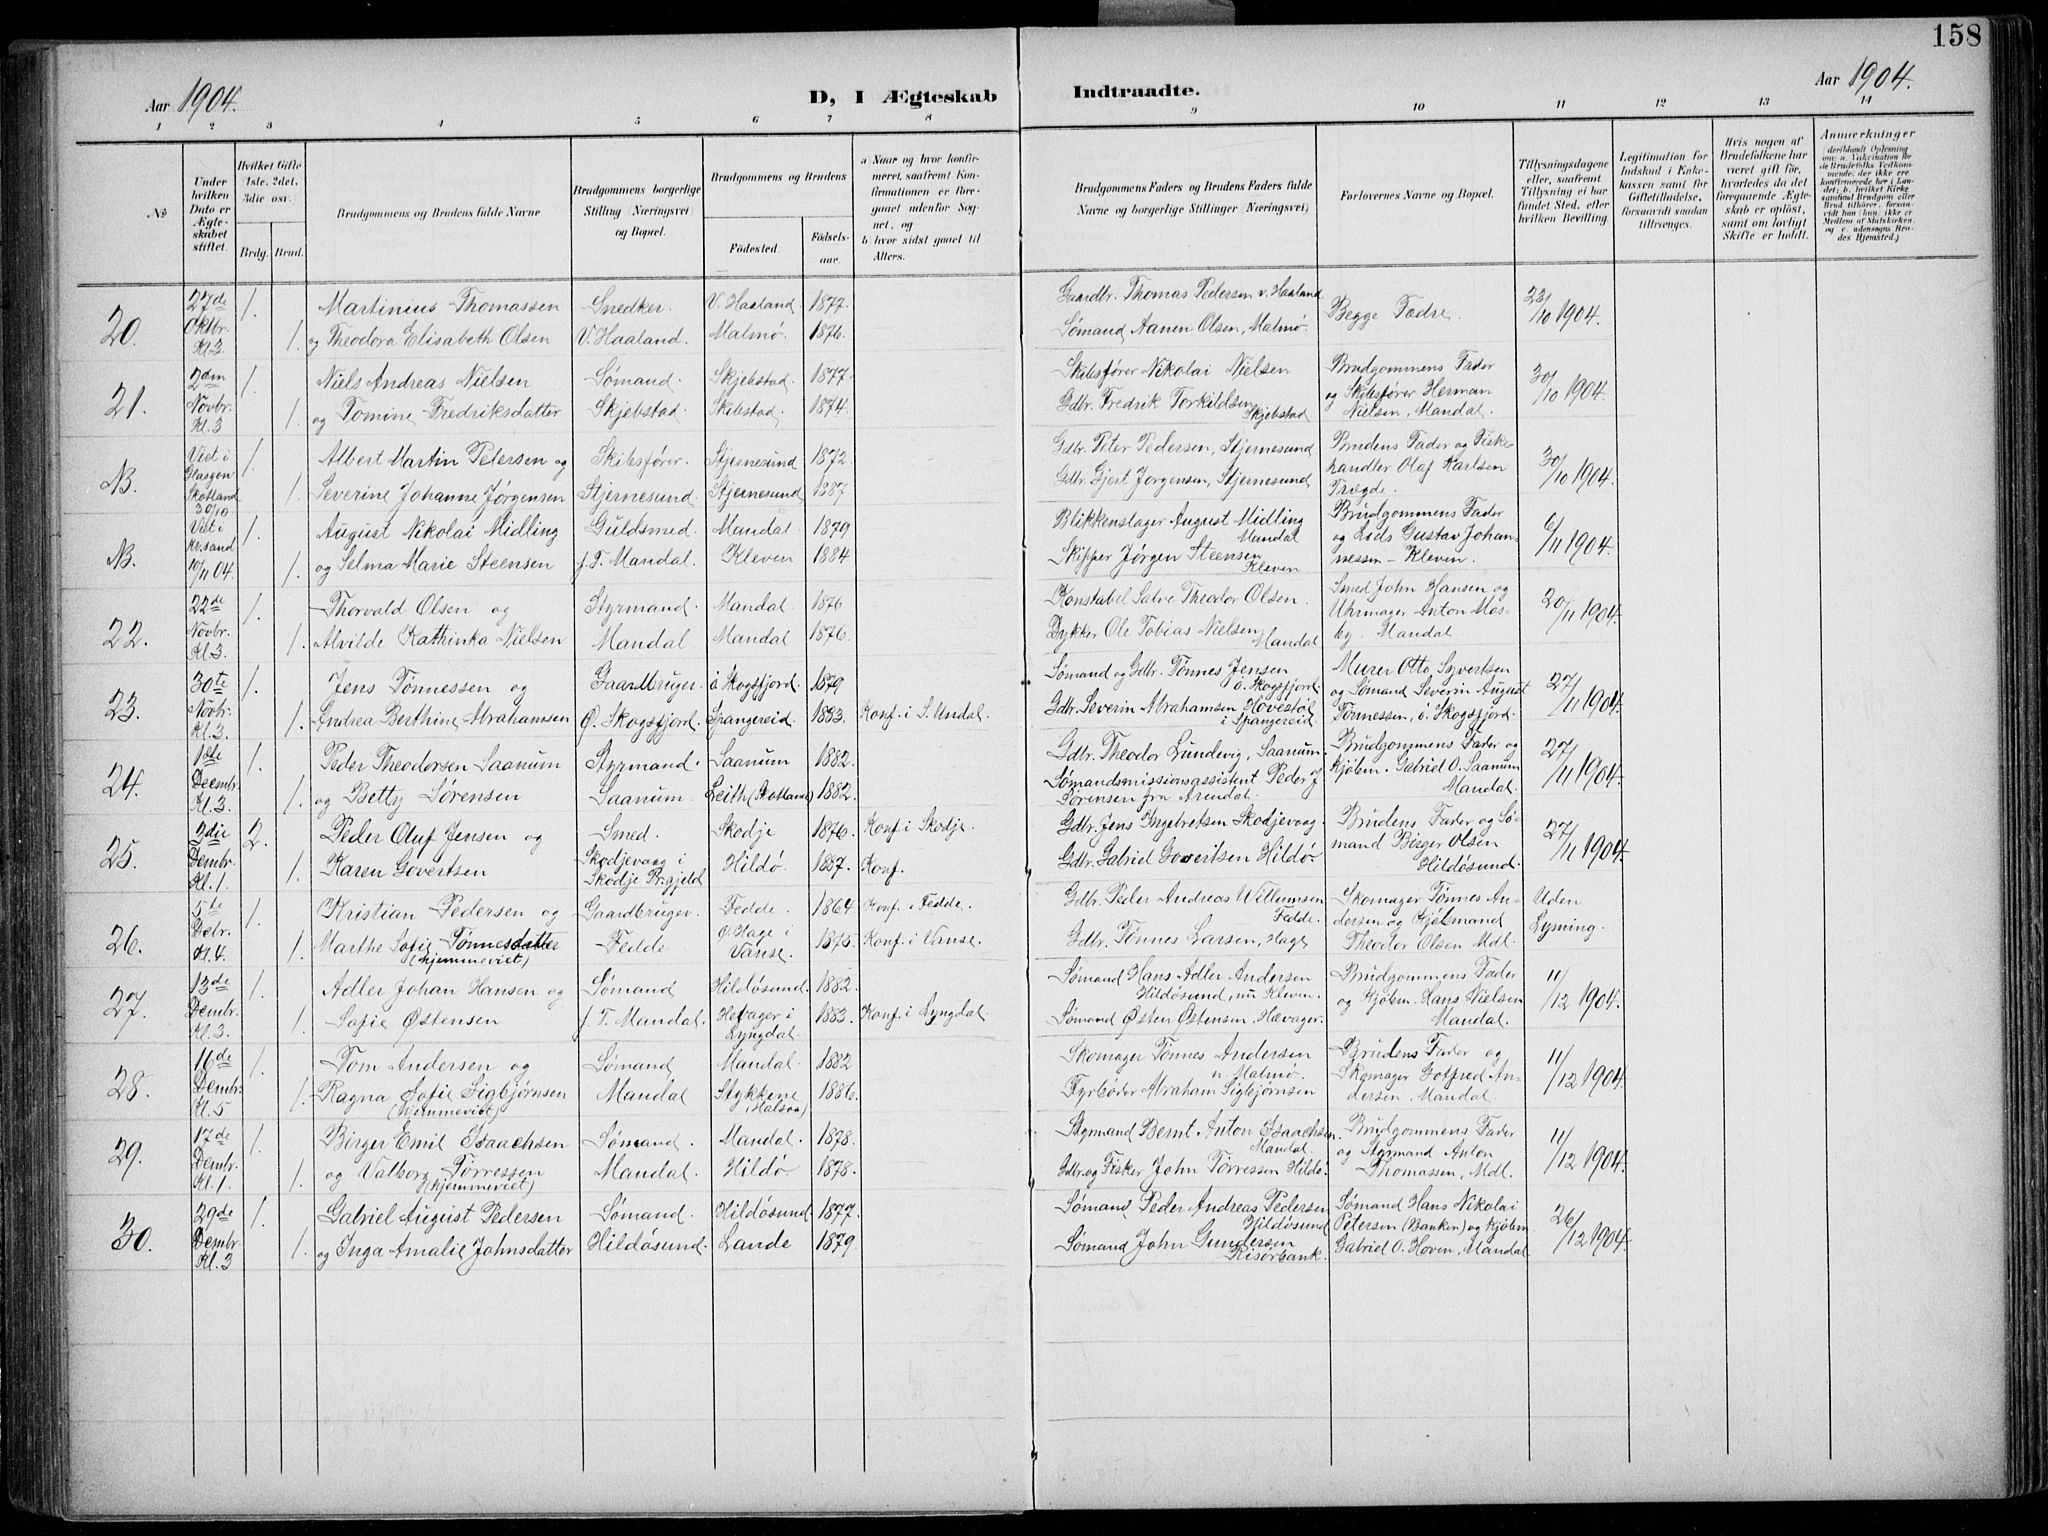 158
Aar 1904. D, I Ægteskab Indtraadte. Aar 1904.
1 2 3 4 5 6 7 8 9 10 11 12 13 14
No
Under hvilken Dato er Ægteskabet stiftet.
Hvilket Gifte 1ste, 2det, 3die osv.
Brdg. Brud.
Brudgommens og Brudens fulde Navne
Brudgommens borgerlige Stilling (Næringsvei) og Bopæl.
Brudgommens og Brudens
Födested. Födselsaar.
a) Naar og hvor konfirmeret, saafremt Konfirmationen er foregaaet udenfor Sognet, og
b) hvor sidst gaaet til Alters.
Brudgommens Faders og Brudens Faders fulde Navne og borgerlige Stillinger (Næringsvei)
Forlovernes Navne og Bopæl.
Tillysningsdagene eller, saafremt Tillysning ei har fundet Sted, efter hvilken Bevilling.
Legitimation for Indskud i Enkekassen samt for Giftetilladelse, forsaavidt saadan tiltrænges.
Hvis nogen af Brudefolkene har været gift för, hvorledes da det foregaaende Ægteskab er oplöst, samt om lovligt Skifte er holdt.
Anmærkninger
20. 27de Oktbr. Kl. 3. 1. Martinius Thomassen Snedker. V. Haaland 1877. Gaardbr. Thomas Pedersen v. Haaland Begge Fædre. 23/10 1904.
1. og Theodora Elisabeth Olsen V. Haaland. Malmø. 1876. Sømand Aanen Olsen, Malmø.
21. 2den Novbr. Kl. 3 1. Niels Andreas Nielsen Sømand. Skjebstad. 1877. Skibsfører Nikolai Nielsen Brudgommens Fader 30/10 1904.
1. og Tomine Fredriksdatter Skjebstad. Skibstad. 1874. Gdbr. Fredrik Torkildsen Skjebstad og Skibsfører Herman Nielsen, Mandal.
N. Viet i Glasgow Skotland 30/10 1. Albert Martin Petersen og Skibsfører. Stjernesund 1872. Gdbr. Peter Pedersen, Stjernesund Brudens Fader og Fiskehandler Olaf Karlsen Trægde. 30/10 1904.
1. Severine Johanne Jørgensen Stjernesund. Stjernesund 1887 Gdbr. Gjert Jorgensen, Stjernesund
N. Viet i Kr.sand 10/11 04. 1. August Nikolai Midling Guldsmed. Mandal 1879 Blikkenslager August Midling Mandal Brudgommens Fader 6/11 1904.
1. og Selma Marie Steensen f. T. Mandal. Kleven 1884 Skipper Jørgen Steensen Kleven og Lods Gustav Johannessen - Kleven.
22. 22de Novbr. Kl. 3. 1. Thorvald Olsen og Styrmand. Mandal. 1876 Konstabel Salve Theodor Olsen. Smed John Hansen og 20/11 1904.
1. Alvilde Kathinka Nielsen Mandal Mandal 1876. Dykker Ole Tobias Nielsen, Mandal Uhrmager Anton Mosby, Mandal.
23. 30te Novbr. Kl. 3. 1. Jens Tønnessen og Gaardbruger. ö Skogsfjord. 1879 Sømand og Gdbr. Tønnes Jensen ö. Skogsfjord. Murer Otto Syvertsen 27/11 1904.
1. Andrea Berthine Abrahamsen Ø. Skogsfjord. Spangereid. 1883. Konf. i S. Undal. Gdbr. Severin Abrahamsen Hovestøl i Spangereid og Sømand Severin August Tönnessen, ö. Skogsfjord.
24. 1ste Decmbr. Kl. 3. 1. Peder Theodorsen Saanum Styrmand. Saanum 1882. Gdbr. Theodor Lundevig, Saanum. Brudgommens Fader og 27/11 1904.
1. og Betty Sørensen Saanum. Leith (Skotland) 1882. Sømandsmissionsassistent Peder J Sørensen fra Arendal. Kjøbm. Gabriel O. Saanum Mandal.
25. 3die Dcmbr. Kl. 1. 2. Peder Oluf Jensen og Smed. Skodje 1876. Konf. i Skodje. Gdbr. Jens Ingebretsen Skodjevaag. Brudens Fader og Sø- 27/11 1904.
1. Karen Govertsen Skodjevaag i Skodje Pr.gjeld Hildö. 1887. Konf. Gdbr. Gabriel Govertsen Hildö. mand Birger Olsen Hildösund.
26. 5te Dcbr. Kl. 4. 1. Kristian Pedersen og Gaardbruger. Fedde. 1864. Konf. i Fedde. Gdbr. Peder Andreas Willumsen Fedde. Skomager Tønnes An- Uden
1. Marthe Sofie Tønnesdatter (hjemmeviet) Fedde Ø. Hage i Vanse. 1875. Konf. i Vanse. Gdbr. Tönnes Larsen, Hage dersen og Kjøbmand Theodor Olsen Mdl. Lysning.
27. 13de Dcmbr. Kl. 3. 1. Adler Johan Hansen og Sømand Hildösund. 1882. Sømand Hans Adler Andersen Hildösund, nu Kleven. Brudgommens Fader 11/12 1904.
1. Sofie Østensen f. T. Mandal. Hevager i Lyngdal 1883. Konf. i Lyngdal. Sømand Østen Østensen, Hævager. og Kjøbm. Hans Nielsen Mandal.
28. 16de Dcmbr. Kl. 5 1. Tom Andersen og Sømand Mandal. 1882 Skomager Tönnes Andersen Malmø. Brudens Fader og 11/12 1904.
1. Ragna Sofie Sigbjørnsen (hjemmeviet) Mandal Stykkene (Halsaa) 1886. Fyrbøder Abraham Sigbjørnsen Skomager Gotfred Andersen, Mandal.
29. 17de Dcmbr. Kl. 1. 1. Birger Emil Isaachsen Sømand. Mandal. 1878. Styrmand Bernt Anton Isaachsen. Mandal. Brudgommens Fader 11/12 1904.
1. og Valborg Tørressen (hjemmeviet) Mandal. Hildö 1878. Gdbr. og Fisker John Törressen Hildö. og Styrmand Anton Thomassen, Mdl.
30. 29de Dcmbr Kl. 3 1. Gabriel August Pedersen Sømand. Hildösund 1877. Sømand Peder Andreas Pedersen Hildösund Sømand Hans Nikolai 26/12 1904.
1. og Inga Amalie Johnsdatter Hildösund. Lande 1879. Sømand John Gundersen Risørbank. Petersen (Banken) og Kjöbm. Gabriel O. Hoven, Mandal